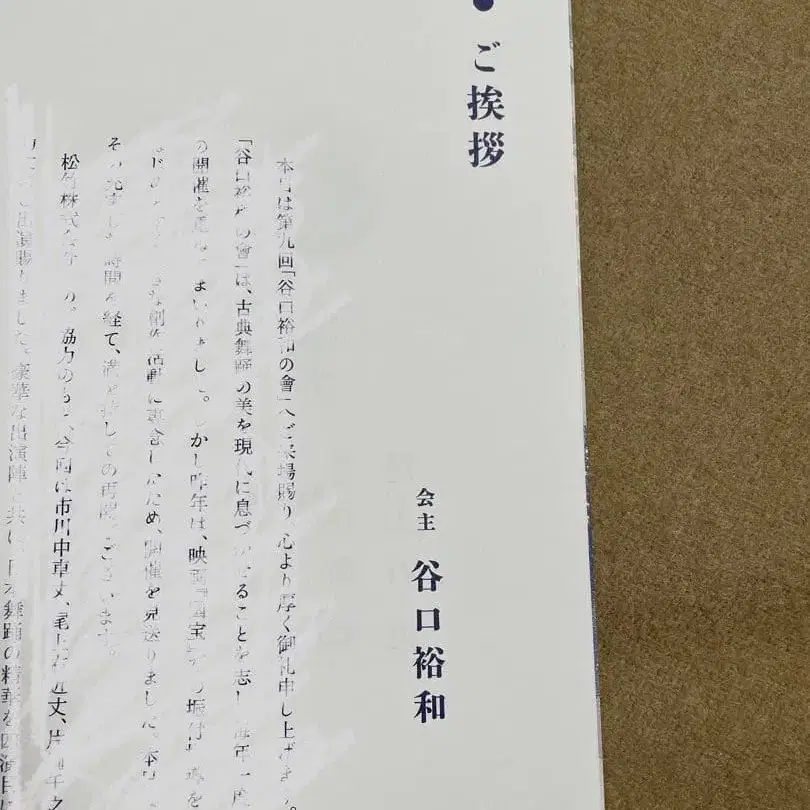 ●ご挨拶
会主 谷口裕和
本日は第九回「谷口裕和の會」へご来場賜り、心より厚く御礼申し上げます。
「谷口裕和の會」は、古典舞踊の美を現代に息づかせることを志し、毎年一度
の開催を重ねてまいりました。しかし昨年は、映画『国宝』での振付
創作活動に専念したため、開催を見送りました。
その充実した時間を経て、満を持しての再開でございます。
松竹株式会社の 協力のもと、今回は市川中車丈、尾上右近丈、片
ご出演賜りました。豪華な出演陣と共に、日本舞踊の精華を四演目に